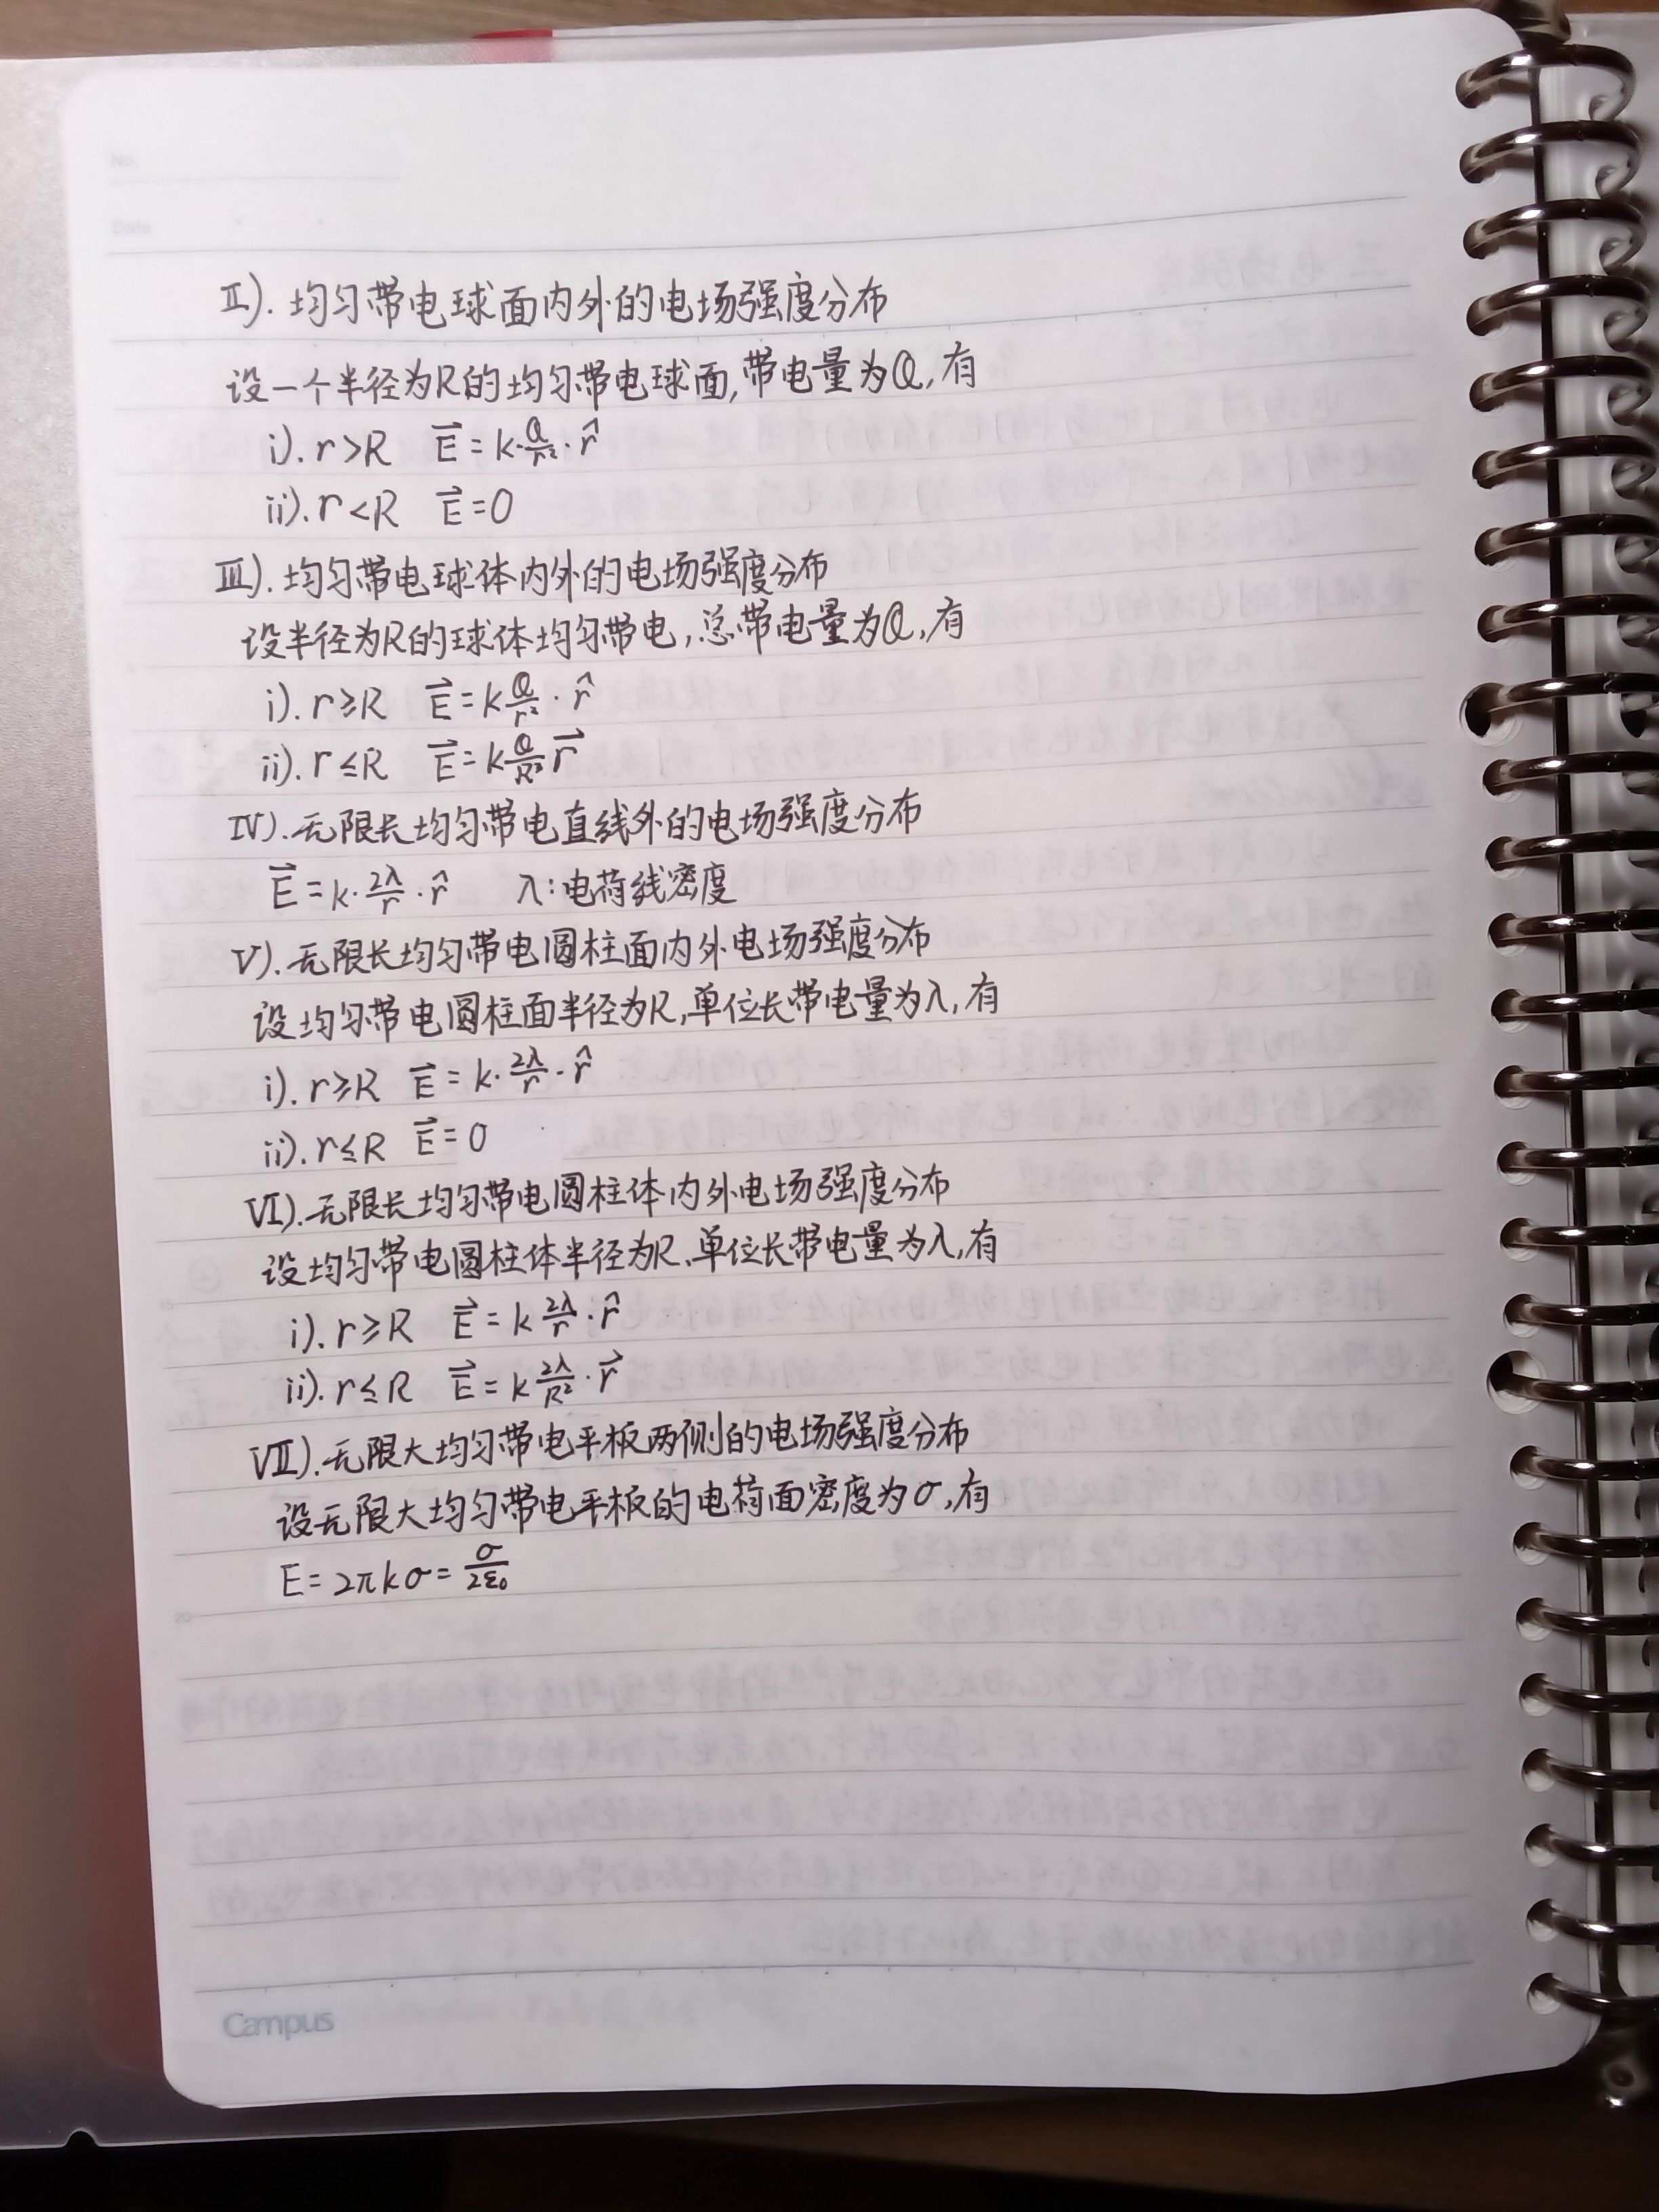 No.
Date
II). 均匀带电球面内外的电场强度分布
设一个半径为R的均匀带电球面,带电量为Q,有
i). r>R E⃗=k·Q/r²·r̂
ii). r<R E⃗=0
III). 均匀带电球体内外的电场强度分布
设半径为R的球体均匀带电,总带电量为Q,有
i). r≥R E⃗=k Q/r²·r̂
ii). r≤R E⃗=k Q/R³ r⃗
IV). 无限长均匀带电直线外的电场强度分布
E⃗=k·2λ/r·r̂ λ:电荷线密度
V). 无限长均匀带电圆柱面内外电场强度分布
设均匀带电圆柱面半径为R,单位长带电量为λ,有
i). r≥R E⃗=k·2λ/r·r̂
ii). r≤R E⃗=0
VI). 无限长均匀带电圆柱体内外电场强度分布
设均匀带电圆柱体半径为R、单位长带电量为λ,有
i). r≥R E⃗=k 2λ/r·r̂
ii). r≤R E⃗=k 2λ/R²·r⃗
VII). 无限大均匀带电平板两侧的电场强度分布
设无限大均匀带电平板的电荷面密度为σ,有
E=2πkσ=σ/2ε₀
15
20
Campus